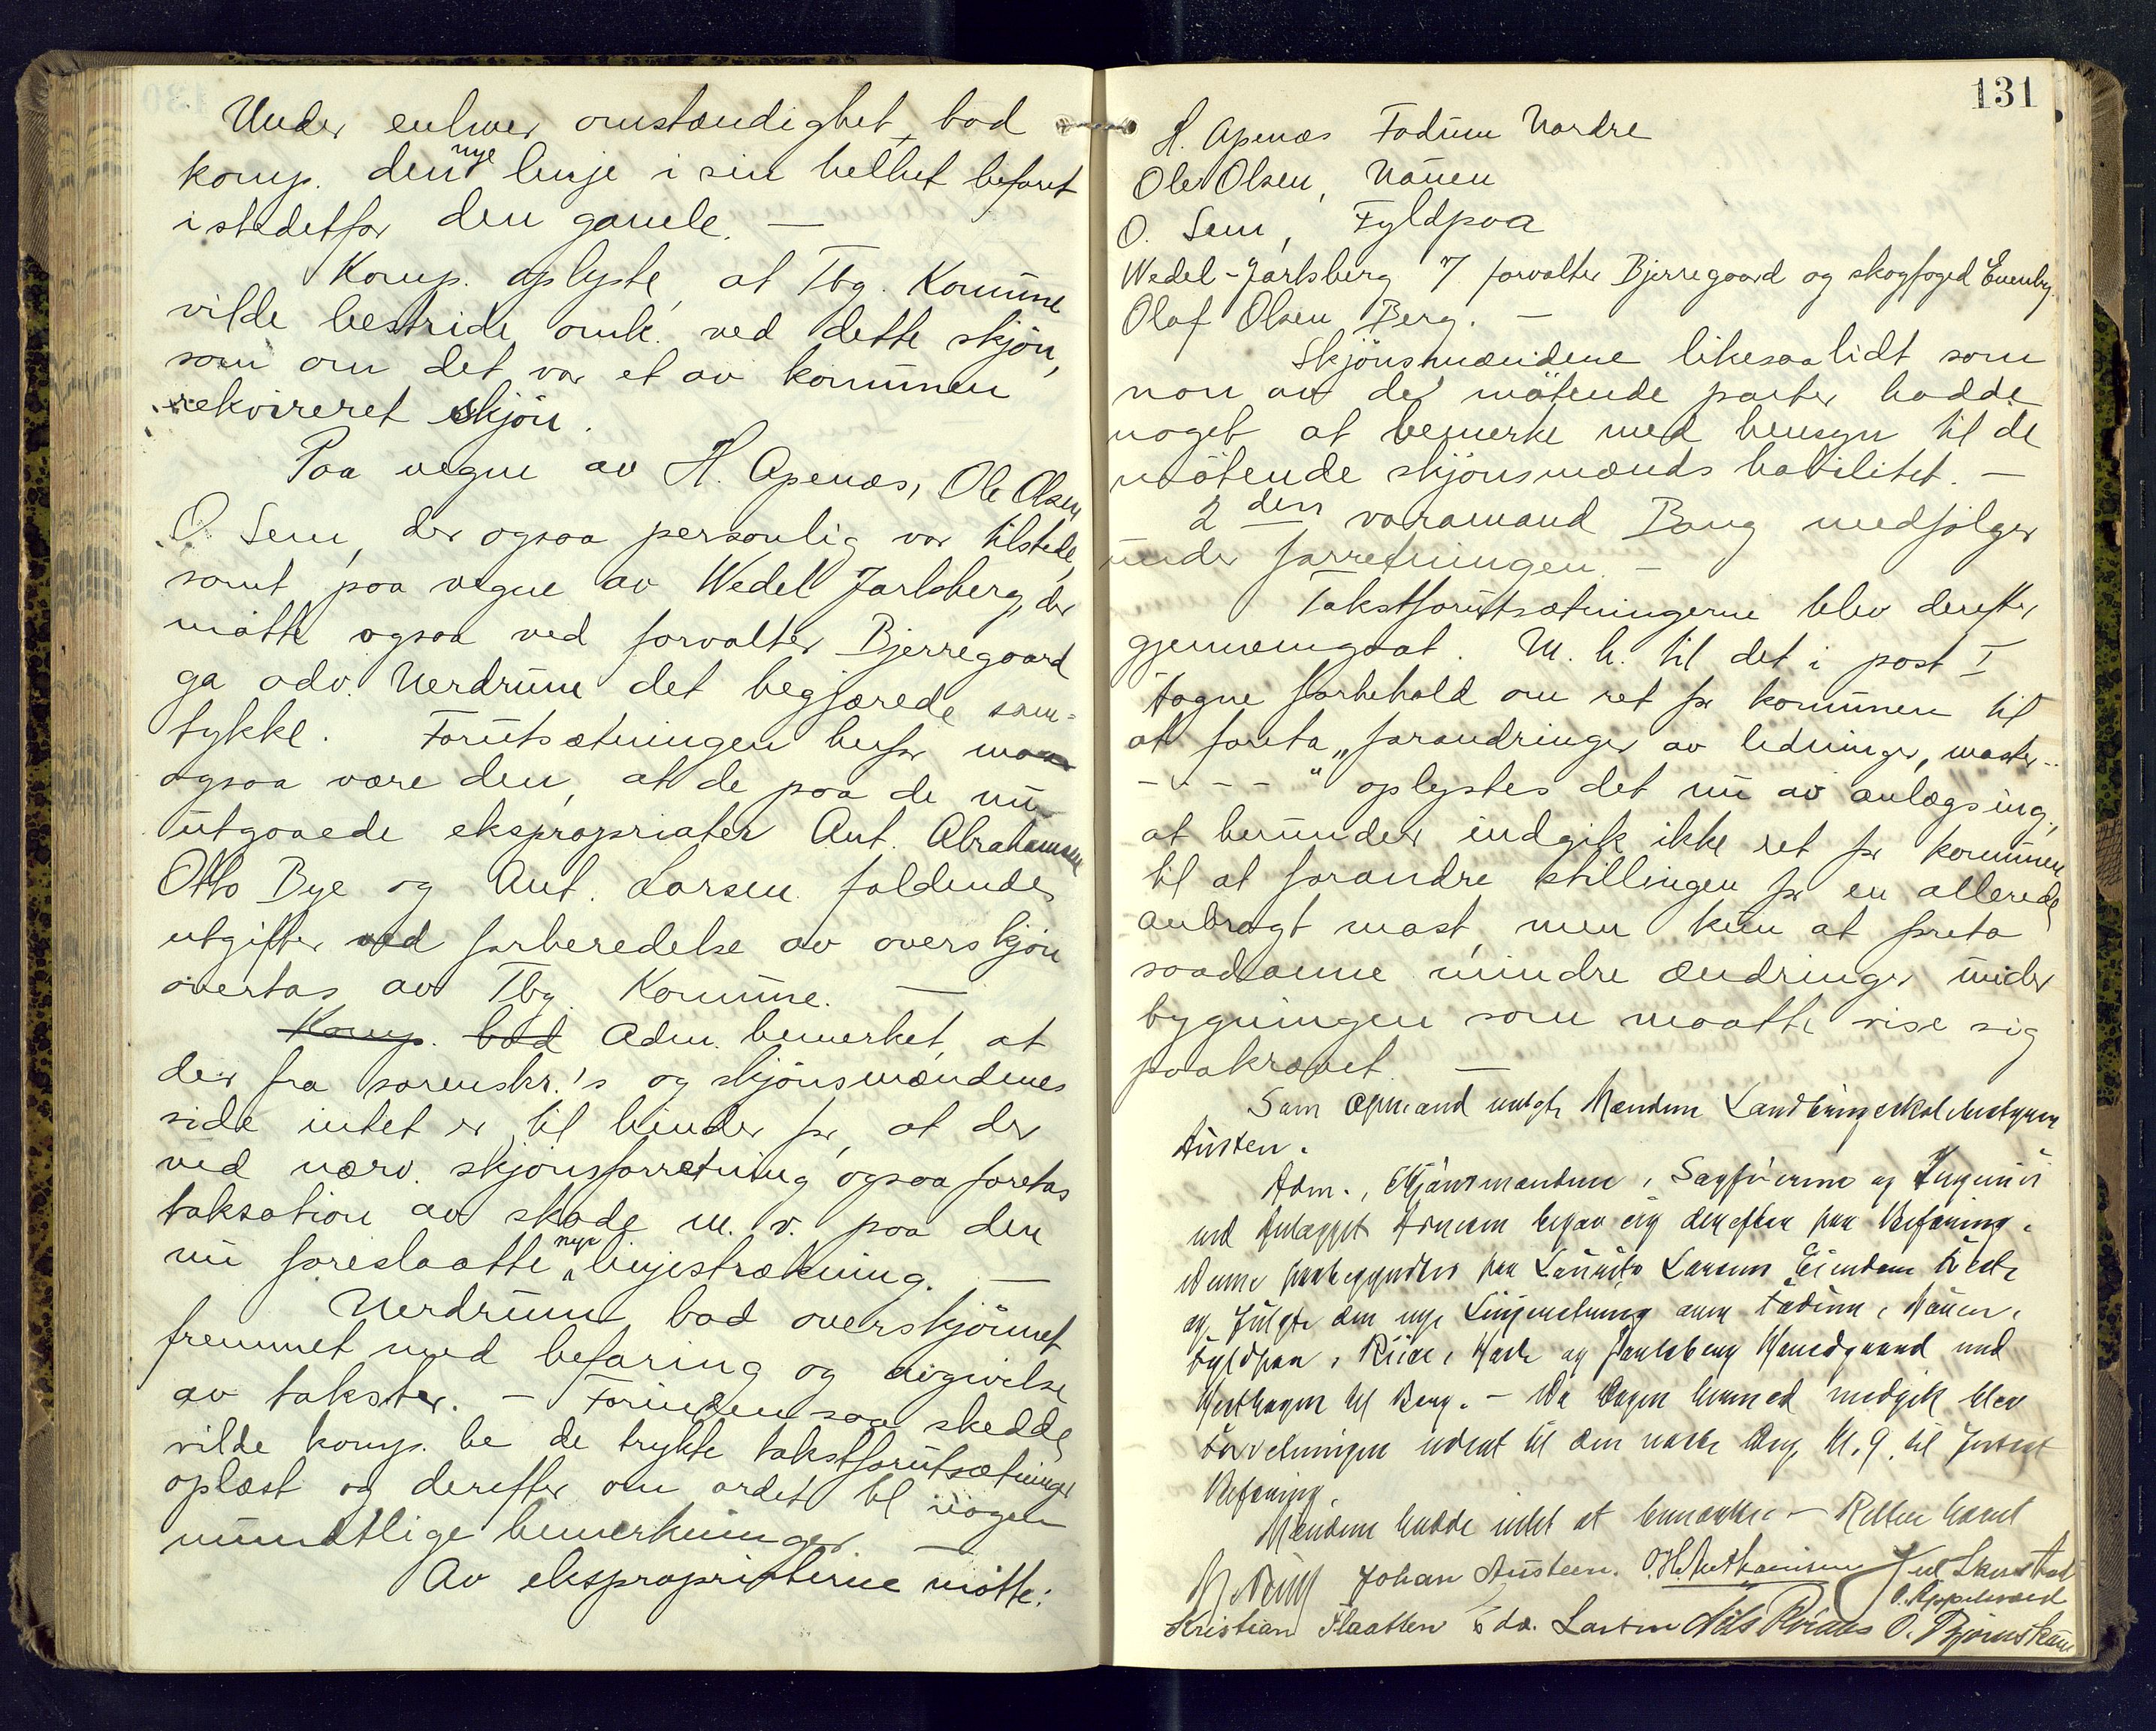 Under enhver omstændighet bad
komp. den nye linje i sin helhet befaret
istedetfor den gamle. —
Komp. oplyste, at Tbg. Kommune
vilde bestride omk. ved dette skjøn,
som om det var et av kommunen
rekvireret skjøn.
Paa vegne av H. Apenæs, Ole Olsen
O. Sem, der ogsaa personlig var tilstede,
samt paa vegne av Wedel Jarlsberg, der
møtte ogsaa ved forvalter Bjerregaard
ga adv. Uerdrum det begjærede sam-
tykke. Forutsætningen herfor maa
ogsaa være den, at de paa de nu
utgaaede ekspropriater Ant. Abrahamsen
Otto Bye og Ant. Larsen faldende
utgifter ved forberedelse av overskjøn
overtas av Tbg. Kommune. —
Komp. bad Adm. bemerket, at
der fra sorenskr.'s og skjønsmændenes
side intet er til hinder for, at der
ved nærv. skjønsforretning ogsaa foretas
taksation av skade m. v. paa den
nu foreslaatte nye linjestrækning. —
Uerdrum bad overskjønnet
fremmet med befaring og avgivelse
av takster. — Forinden saa skedde
vilde komp. be de trykte takstforutsætninger
oplæst og derefter om ordet til nogen
mundtlige bemerkninger. —
Av ekspropriaterne møtte:
131
H. Apenæs Fadum Nordre
Ole Olsen, Nauen
O. Sem, Fyldpaa
Wedel-Jarlsberg v/ forvalter Bjerregaard og skogfoged Evenby.
Olaf Olsen Berg. —
Skjønsmændene likesaalidt som
non av de møtende parter hadde
noget at bemerke med hensyn til de
møtende skjønsmænds habilitet. —
2 den varamand Bang medfølger
under forretningen. —
Takstforutsætningerne blev derefter
gjennemgaat. M. h. til det i post I
tagne forbehold om ret for kommunen til
at foreta „forandringer av ledninger, master..
- - - - " oplystes det nu av anlægsing.,
at herunder indgik ikke ret for kommunen
til at forandre stillingen for en allerede
anbragt mast, men kun at foreta
saadanne mindre ændringer under
bygningen som maatte vise sig
paakrævet. —
Som Opmand valgte Mændene Landbrugsskolebestyrer
Austen.
Adm., Skjønsmændene, Sagførerne og Ingeniør
ved Anlægget begav sig derefter paa Befaring.
Denne paabegyndtes paa Lauritz Larsens Eiendom
og fulgte den nye Linjeretning over Fadum, Nauen,
Fyldpaa, og Jarlsberg Hovedgaard med
til Berg. — Da Dagen hermed medgik blev
Forretningen udsat til den næste Dag Kl. 9 til fortsat
Befaring.
Mændene hadde intet at bemærke. — Retten hævet
Johan Austeen.
Kristian Flaatten Edv. Larsen